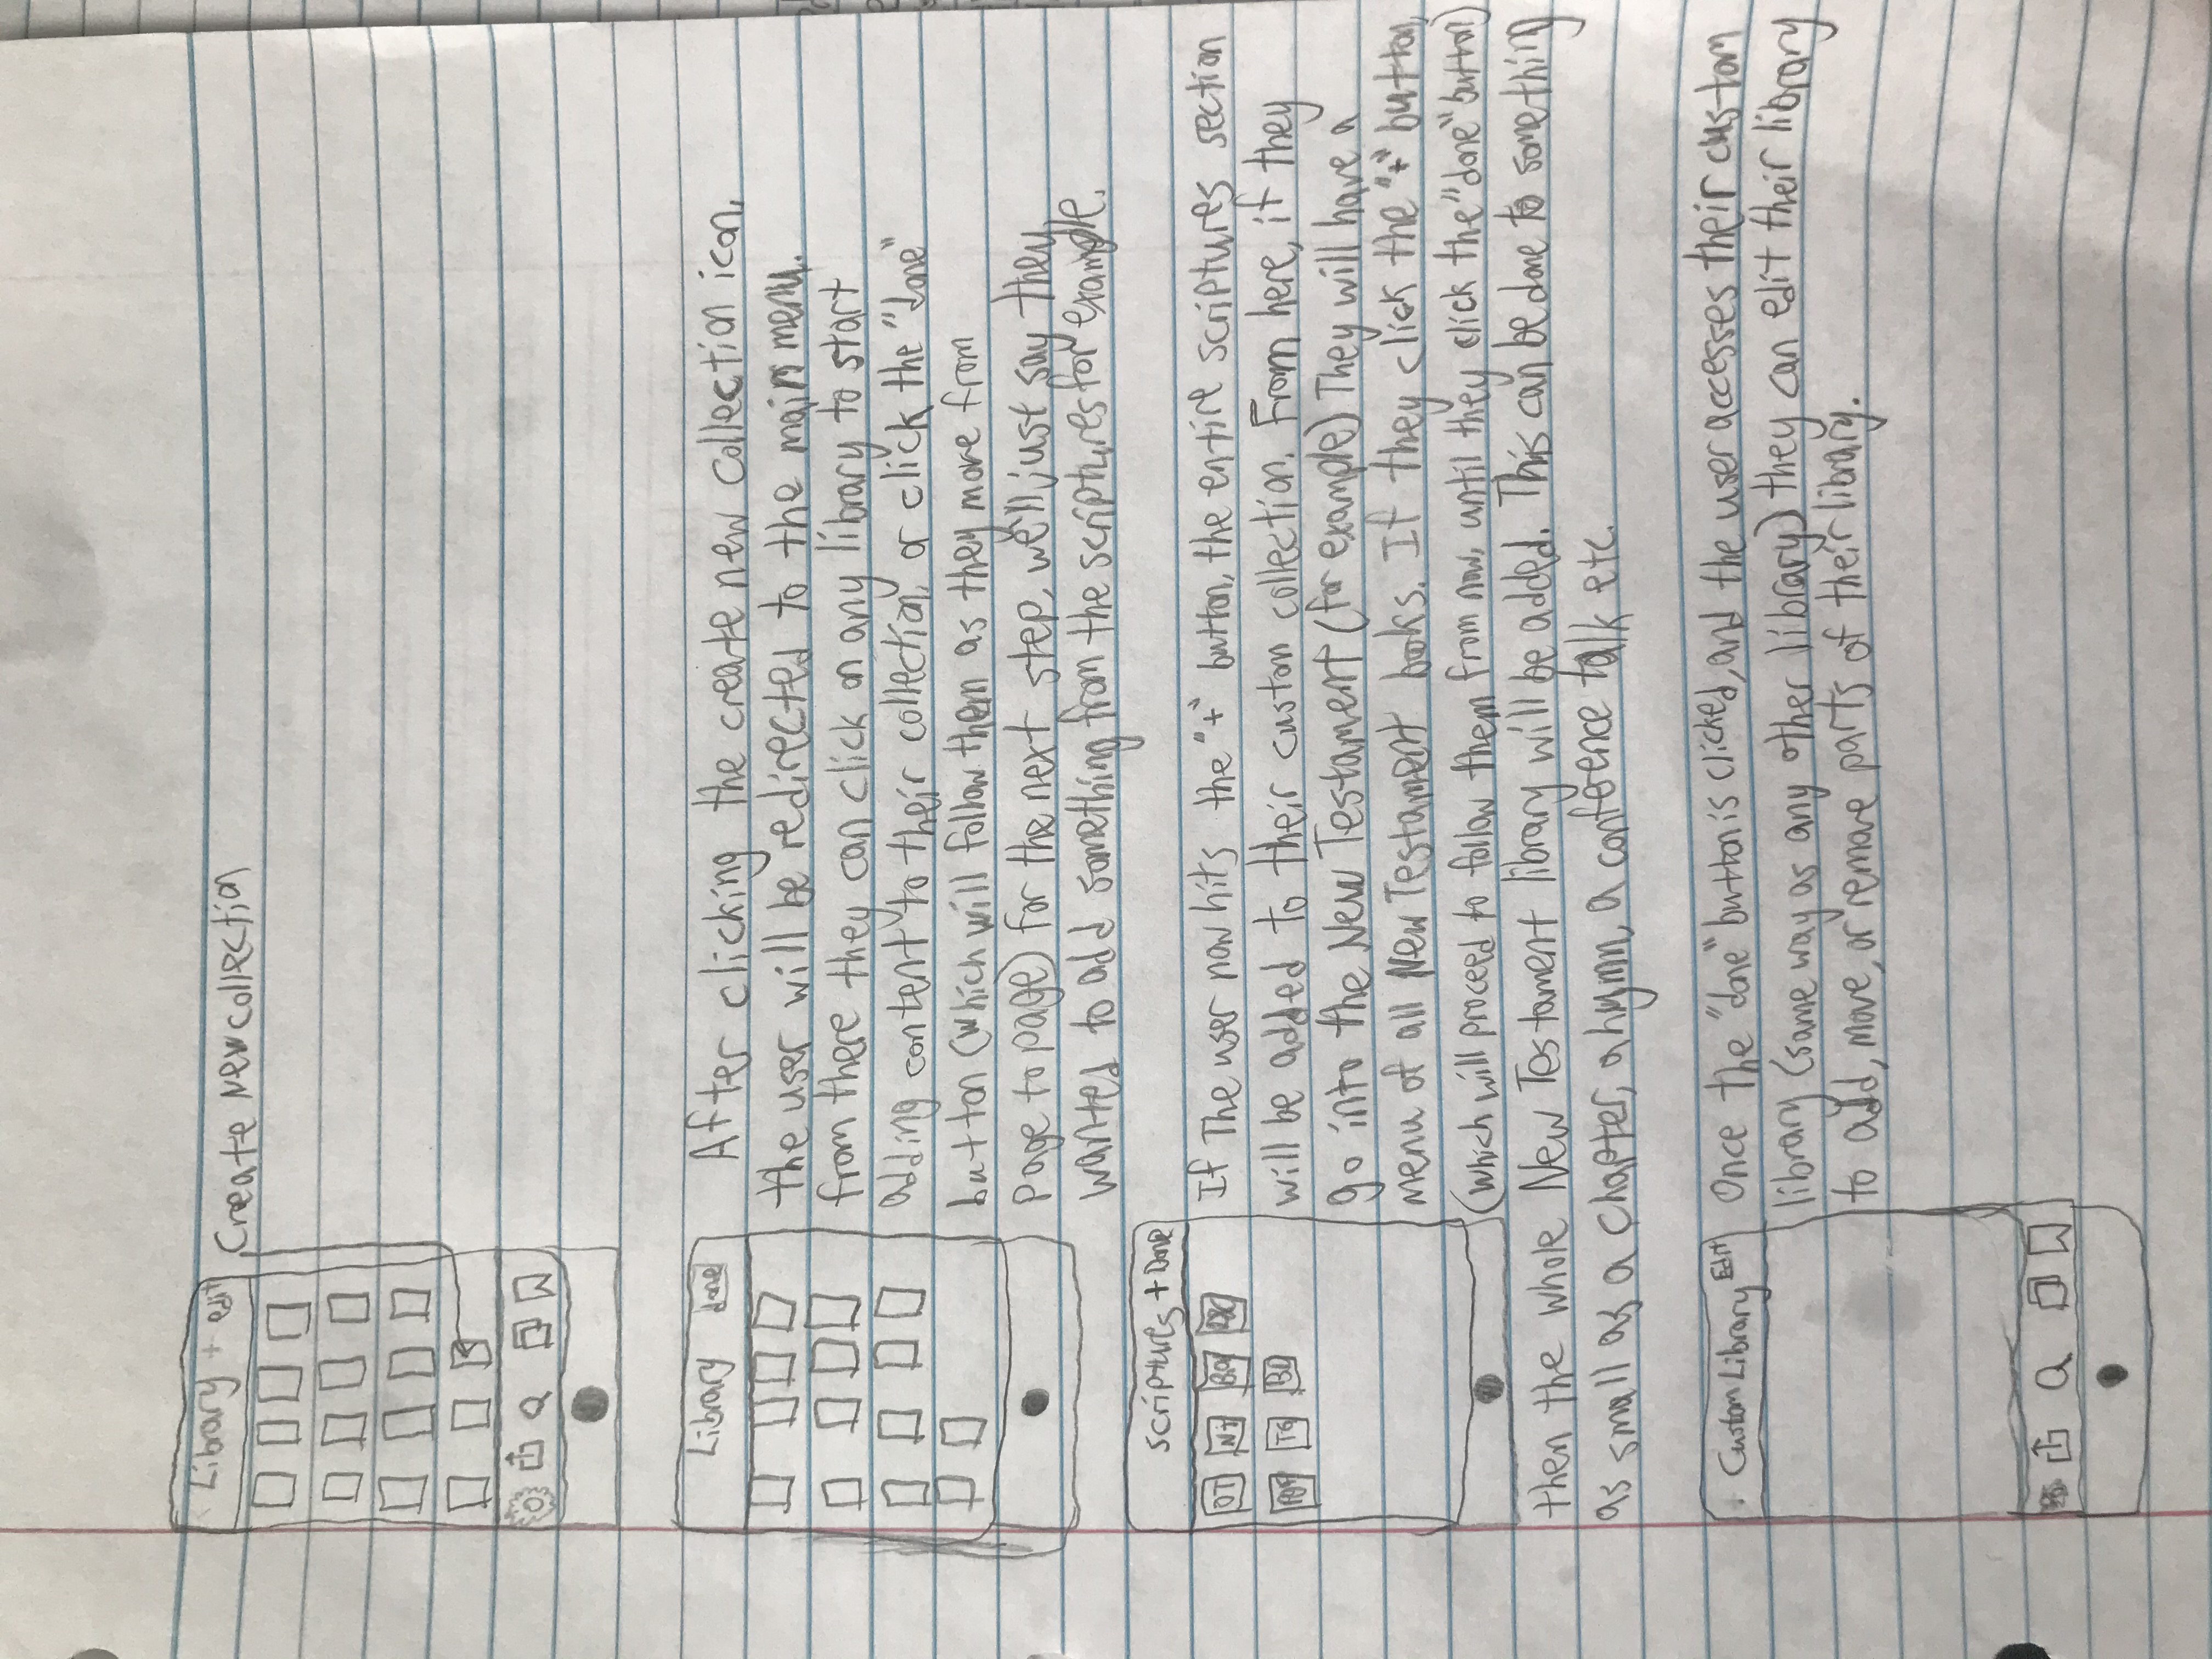 Library + edit
Create New collection
Library done
After clicking the create new collection icon,
the user will be redirected to the main menu.
from there they can click on any library to start
adding content to their collection, or click the "done"
button (which will follow them as they move from
page to page) for the next step, we'll just say they
wanted to add something from the scriptures for example.
scriptures + Done
OT NT
TG BD
If The user now hits the "+" button, the entire scriptures section
will be added to their custom collection. From here, if they
go into the New Testament (for example) They will have a
menu of all New Testament books. If they click the "+" button,
(which will proceed to follow them from now, until they click the "done" button)
then the whole New Testament library will be added. This can be done to something
as small as a chapter, a hymn, a conference talk etc.
Custom Library Edit
Once the "done" button is clicked, and the user accesses their custom
library (same way as any other library) they can edit their library
to add, move, or remove parts of their library.